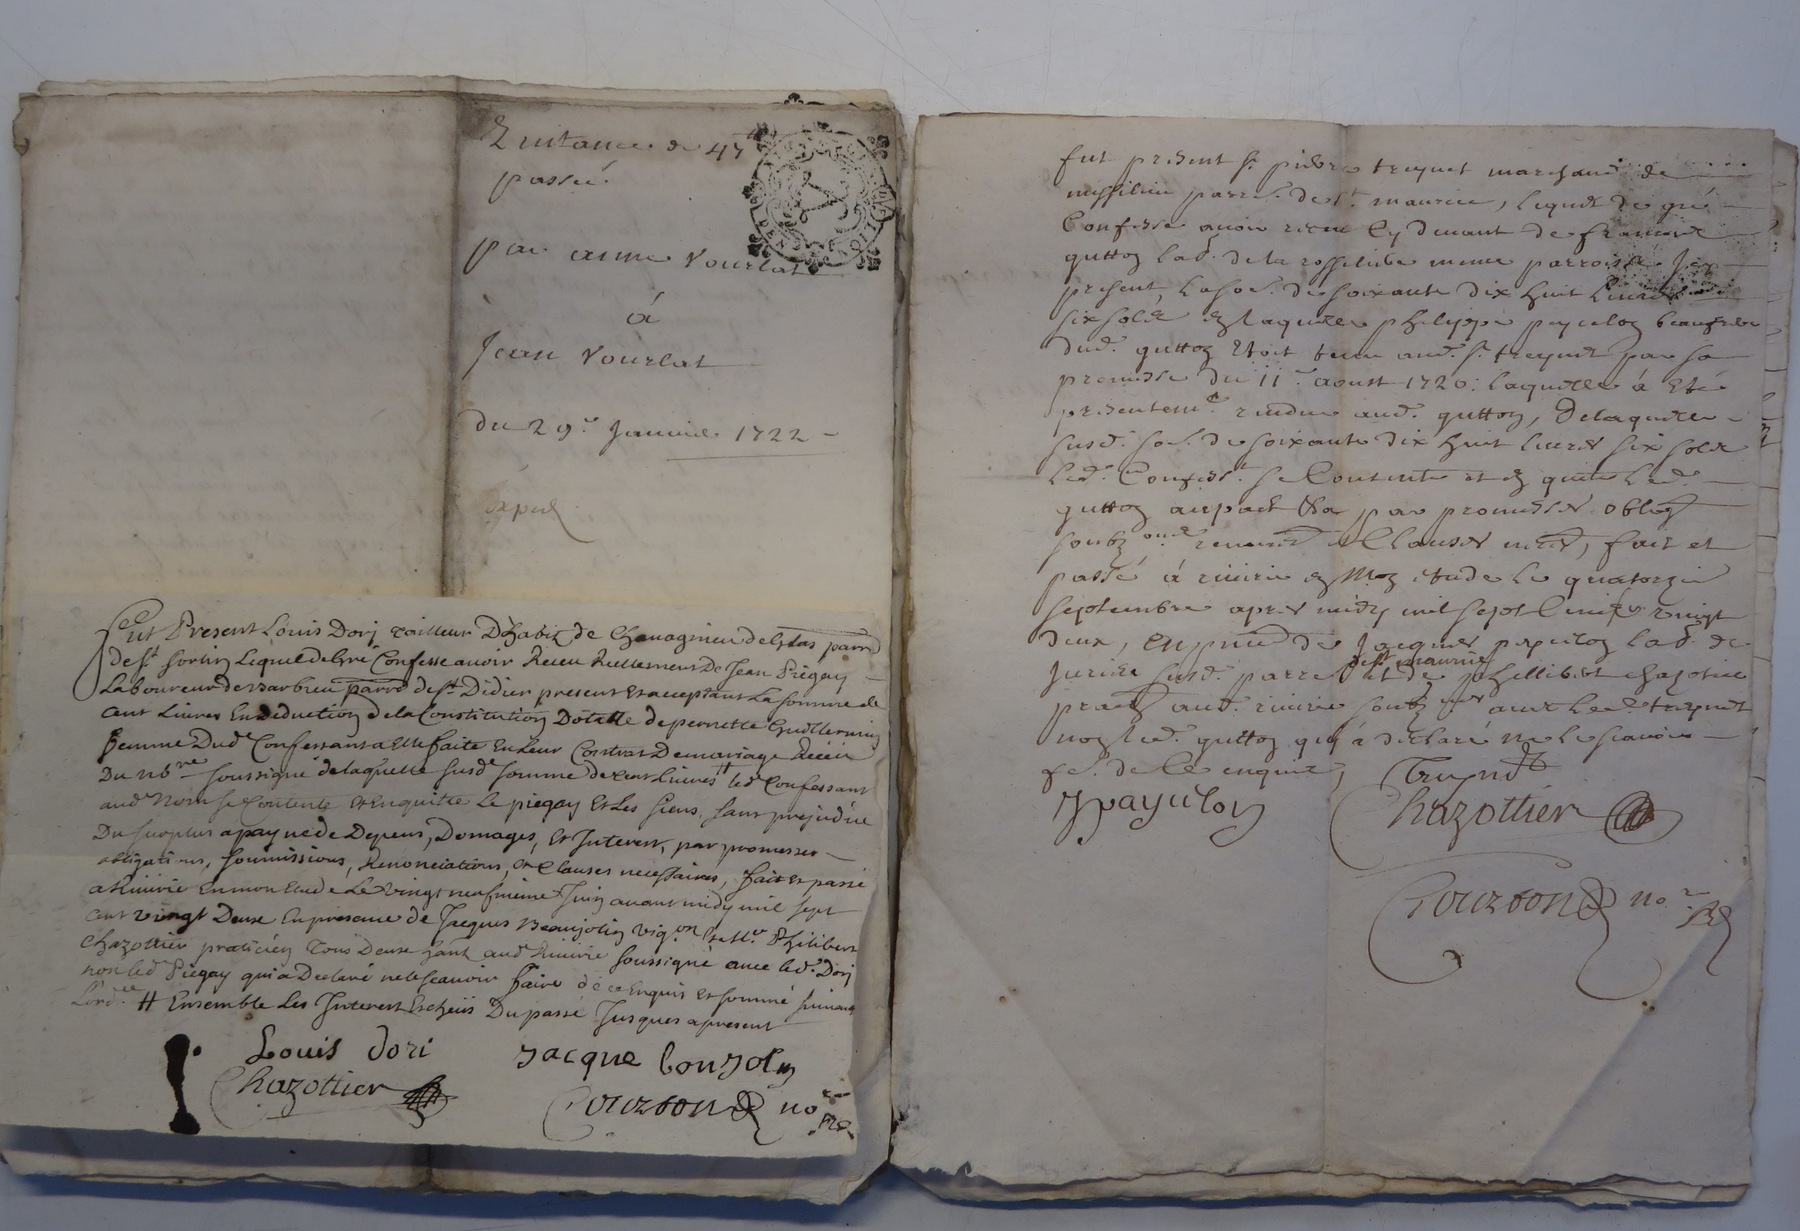 Quitance de 47
passée
par anne Vourlat
à
Jean Vourlat
du 29.e Janvier 1722
Expéd.
Fut Present Louis Dorj tailleur D'habit de Chenagnieu parre
de St sorlin Lequel de Gré Confesse avoir Receu Reellement De Jean Piegay
Laboureur de Barbieu parre de St Didier present et acceptant La somme de
cent Livres En deduction de la Constitution Dotalle de pernette Guillermin
femme Dud Confessant a Elle faite En Leur Contrat De mariage Receu
Du nore soussigné de laquelle susd somme de cent Livres # led Confessant
aud Nom se Contente Et Enquitte Le piegay Et Les Siens, sans prejudice
Du surplus a payne de Depens, Domages, et Interest, par promesses
obligations, soumissions, Renonciations, et Clauses necessaires, fait et passé
a Rivirie En mon Etude Le vingt neufvieme Juin avant midy mil sept
cent vingt Deux En presence de Jacques Beaujolin vig.on et Philibert
Chazottier praticien tous Deux hant aud Rivirie soussigné avec led. Dorj
non led Piegay qui a Declaré ne le scavoir faire de ce Enquis et sommé suivant
L'ord.ce # Ensemble Les Interest Escheüs Du passé Jusques a present
Louis dori Jacque bonjolin
Chazottier Gourdon no.re
fut present Sr. pierre treynet marchand de
parre. de St. maurice, lequel de gré
Confesse avoir receu cy devant de
guttoy lab. de la rossiliere meme parroisse Icy
present, la so.e de soixante dix huit livres
six sols en laquelle phelippe payeloy beaufrere
dud. guttoy étoit tenu aud. Sr. treynet par sa
promesse du 11.e aoust 1720: laquelle à été
presentemt. rendue aud. guttoy, de laquelle
susd. so.e de soixante dix huit livres six sols
led. Confess.t se Contente et en quitte led.
guttoy par promesses oblig.
soubz.ons renonc. & Clauses necess., fait et
passé à rivirie en Moy étude le quatorzie
septembre apres midy mil sept Cents vingt
deux, en pnce de Jacques payeloy lab. de
de St. maurice
Jurieu susd. parre et de phellibert chazotier
prat.n aud. rivirie soubz.nes avec led. treynet
noy led. guttoy quy à déclaré ne le scavoir
fe. de Ce enquis,
Treynet
Jpayeloy Chazottier
Gourdon no.re